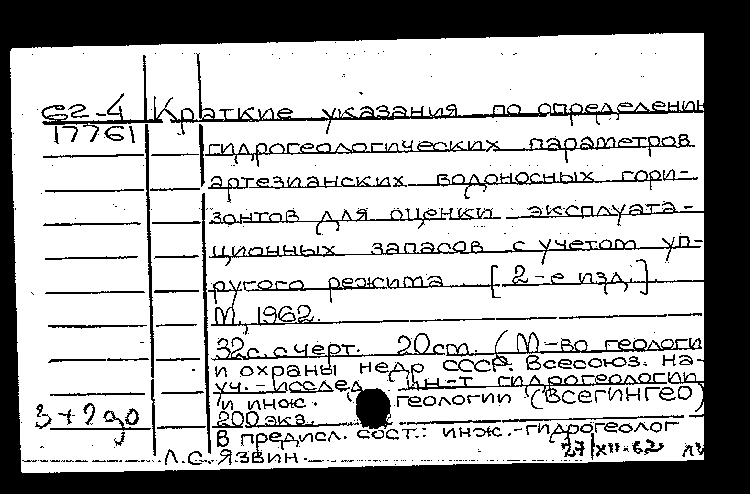 62-4 Краткие указания по определению
17761
гидрогеологических параметров
артезианских водоносных гори-
зонтов для оценки эксплуата-
ционных запасов с учетом уп-
ругого режима. [2-е изд.]
М., 1962.
32с. с черт. 20см. (М-во геологи
и охраны недр СССР. Всесоюз. на-
уч.-исслед. ин-т гидрогеологии
и инж. геологии (ВСЕГИНГЕО)
200 экз.
В предисл. сост.: инж.-гидрогеолог
Л.С. Язвин.
27/XII-62